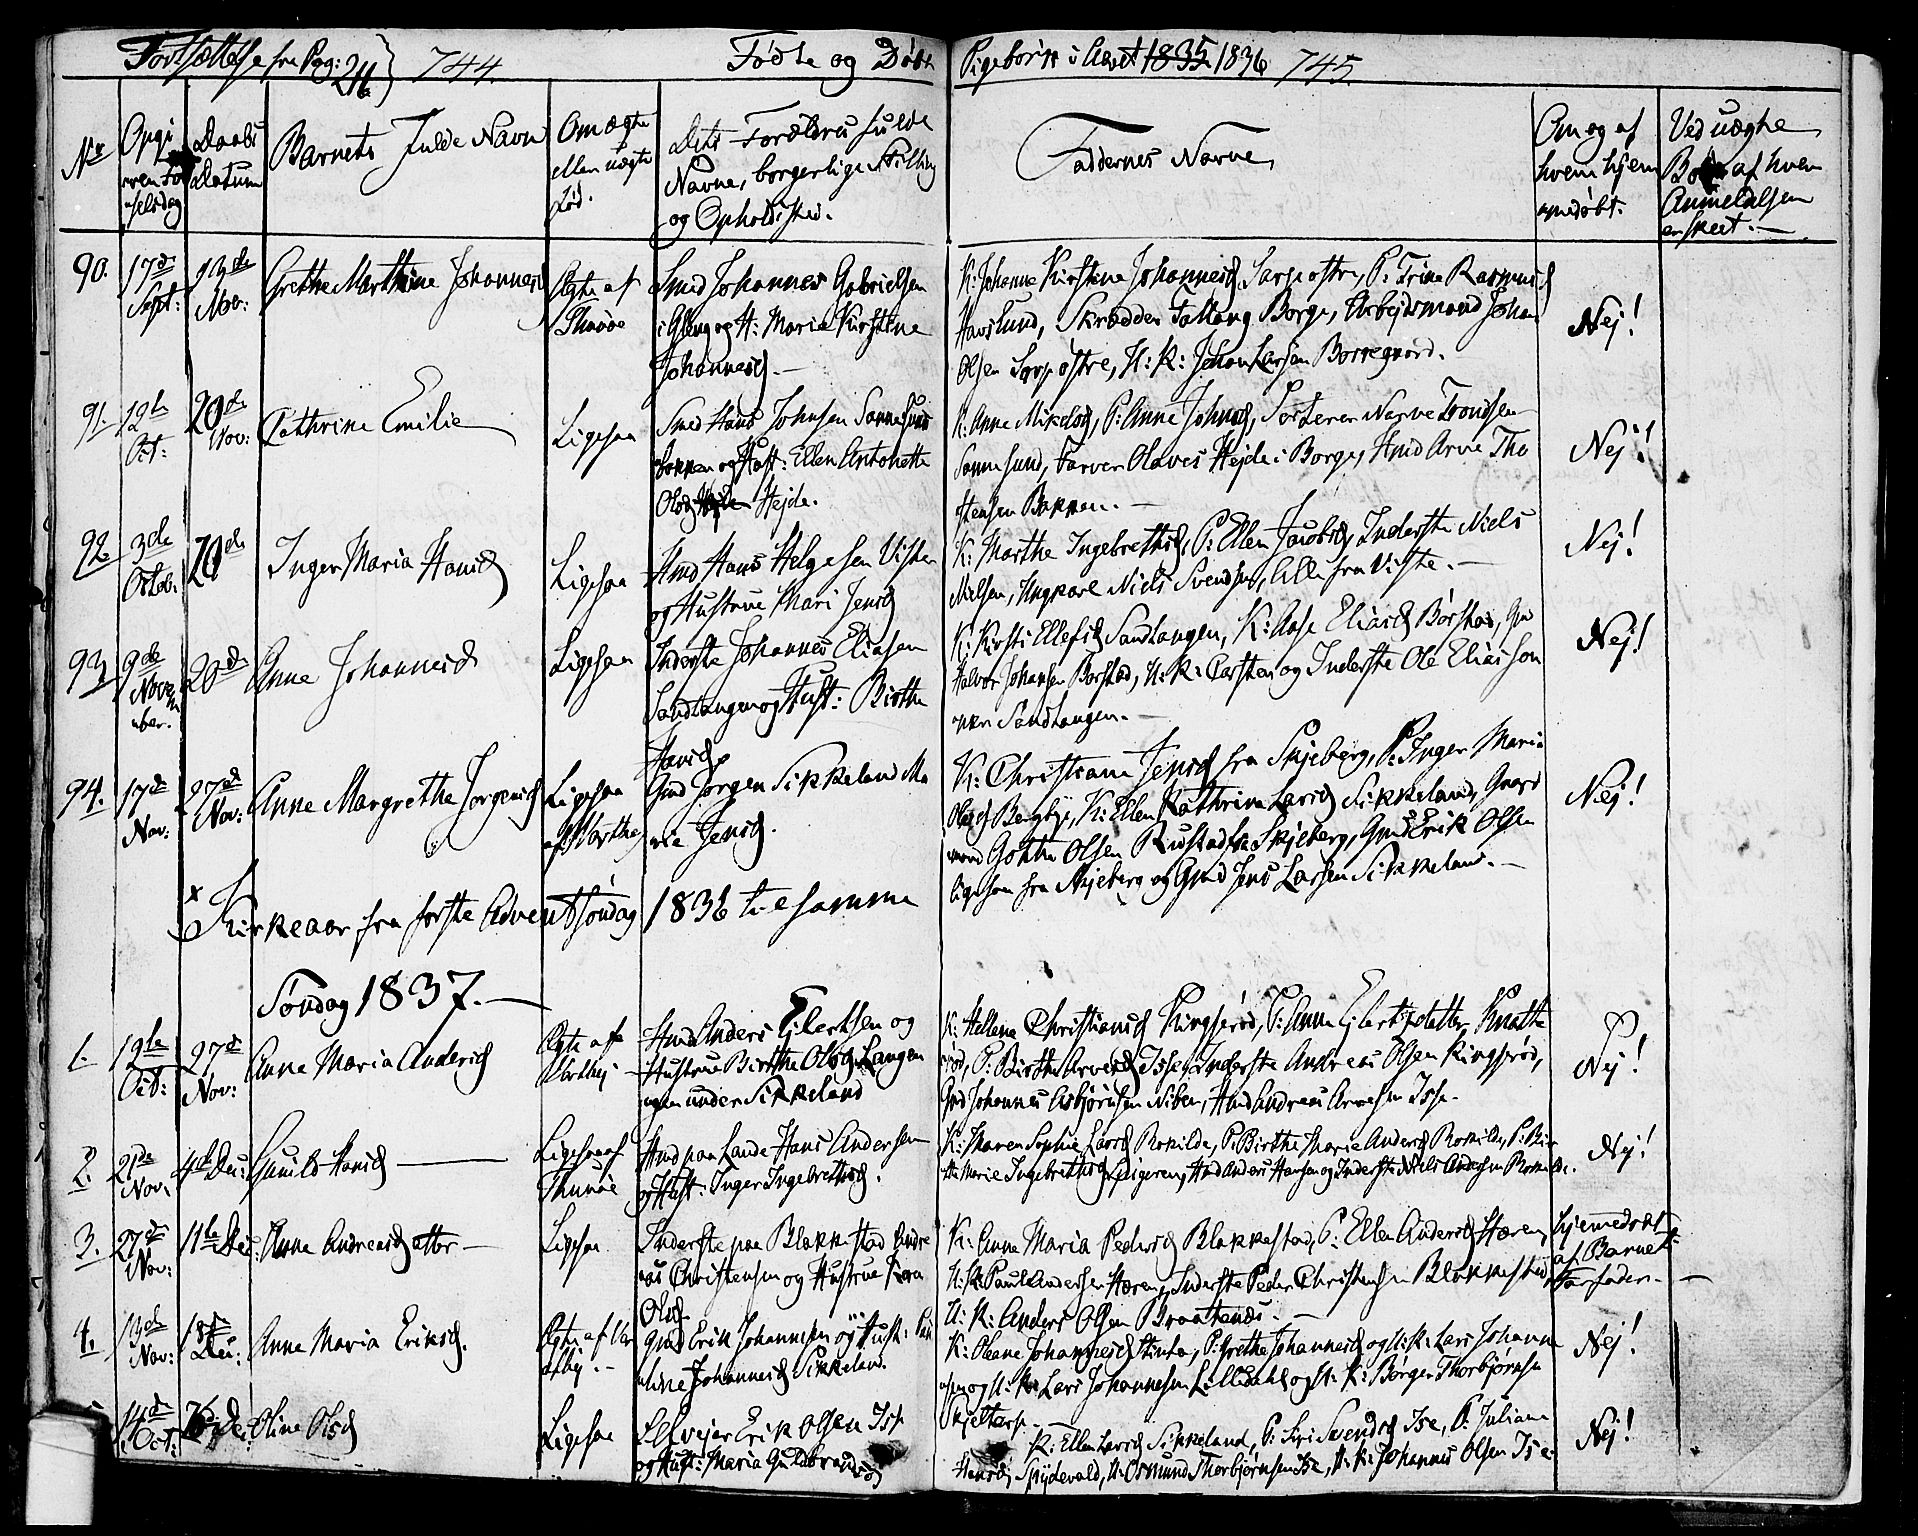 Fortsættelse fra Pag: 216) 744. Fødte og Døbte Pigebørn i Aaret 1835 1836 745.
No
Opgi
ven Fø
selsdag
Daabs
Datum
Barnets fulde Navn
Om ægte
eller uægte
Fød.
Dets Forældres fulde
Navne, borgerlige Stilling
og Opholdssted.
Faddernes Navne,
Om og af
hvem hjem
medøbt.
Ved uægte
Børn af hvem
Anmeldelsen
er skeet. —
90. 17de Sept: 13de Nov: Grethe Marthine Johannesd Ægte af
Smed Johannes Gabrielsen
i Gleng og H: Maria Kirstine
Johannesd. —
K: Johanne Kirstine Johannesd Sarpostre, P: Trine Rasmusd
Havslund, Skrædder Tallang Borge, Arbejdsmand Johan
Olsen Sarpostre, U: K: Johan Larsen Borregaard.
Nej!
91. 12te Oct: 20de Nov: Cathrine Emilie Ligesaa
Smed Hans Johnsen Sannesund
Bakken og Hust: Ellen Antonette
Olsd Hejde.
K: Anne Mikelsd, P: Anne Johnsd, Sorterer Narve Trondsen
Sannesund, Farver Olaves Hejde i Borge, Hmd Arve Tho
stensen Bakken. —
Nej!
92. 3de Octob: 20de Inger Maria Hansd Ligesaa
Hmd Hans Helgesen Vister
og Hustrue Mari Jensd
K: Marthe Ingebrethsd, P: Ellen Jacobsd, Inderste Niels
Nielsen, Ungkarl Niels Svendsen, Alle fra Viste. —
Nej!
93. 9de Novem
ber. 20de Anne Johannesd Ligesaa
Inderste Johannes Eliasen
Sandtangen og Hust: Birthe
Hansd
K: Kirsti Ellefsd Sandtangen, K: Aase Eliasd Børstad, Gmd
Halvor Johansen Børstad, U: K: Carsten og Inderste Ole Eliassen
Sandtangen. —
Nej!
94. 17de Nov: 27de Nov: Anne Margrethe Jørgensd Ligesaa
Gmd Jørgen Sikkeland Ma
rie Jensd.
K: Christiane Jensd fra Skjeberg, P: Inger Maria
Olsd Bergbye, K: Ellen Kathrine Larsd Sikkeland, Gaard
mand Gotthe Olsen Rustad fra Skjeberg, Gmd Erik Olsen
ligesom fra Skjeberg og Gmd Jens Larsen Sikkeland. —
Nej!
x Kirkeaar fra første Advent Søndag 1836 til samme
Søndag 1837. —
1. 19de Oct: 27de Nov: Anne Maria Andersd Ægte af
Hmd Anders Ejlertsen og
Hustrue Birthe Olsd Langen
under Sikkeland
K: Hellene Christiansd Kingsrød, P: Anne Ejlertsdatter Knatte
rød, P: Birthe Arvesd Isse, Inderste Andreas Olsen Kingsrød,
Gmd Johannes Asbjørnsen Niben, Hmd Andreas Arvesen Isse.
Nej!
2. 21de Nov: 4de Dec: Gunild Hansd — Ligesaa af
Thunøe
Hmd paa Lande Hans Andersen
og Hust: Inger Ingebrethsd.
K: Maren Sophie Larsd Rokilde, P: Birthe Marie Andersd Rokilde, P: Bir
the Marie Ingebrethsd Spigeren, Hmd Anders Hansen og Inderste Niels Andersen Rokilde.
Nej!
3. 27de Nov: 11te Dec: Anne Andreasdatter — Ligesaa
Inderste paa Blakkestad Andre
as Christensen og Hustrue Kara
Olsd
K: Anne Maria Pedersd Blakkestad, P: Ellen Andersd Hæren,
U: K: Paul Andersen Hæren, Inderste Peder Christensen Blakkestad,
U: K: Anders Olsen Braatenes. —
hjemmedøbt
af Barnets
Farfader. —
4. 13de Nov: 18de Dec: Anne Maria Eriksd. Ægte af
Gmd Erik Johannesen og Hust: Pau
line Johannesd Sikkeland.
K: Oleane Johannesd Stinta, P: Grethe Johannesd og U: K: Lars Johann
esen og U: K: Lars Johannesen Lilledahl og U: K: Børger Thorbjørnsen
Skjeltorp. —
Nej!
14de Oct: 26de Dec: Oline Olsd Ligesaa
Erik Olsen Isse
og Hust: Maria Guldbrandsd
K: Ellen Larsd Sikkeland, P: Siri Svendsd Ise, P: Juliane
Hansd Spydevold, U: Osmund Thorbjørnsen Ise, U: K: Johannes Olsen Ise.
Nej!